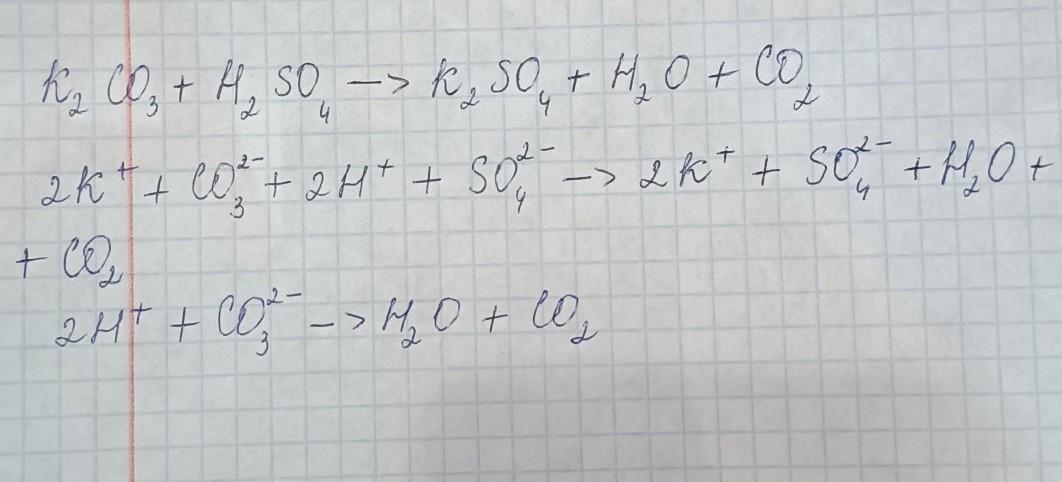 K₂CO₃ + H₂SO₄ —> K₂SO₄ + H₂O + CO₂
2K⁺ + CO₃²⁻ + 2H⁺ + SO₄²⁻ —> 2K⁺ + SO₄²⁻ + H₂O +
+ CO₂
2H⁺ + CO₃²⁻ —> H₂O + CO₂